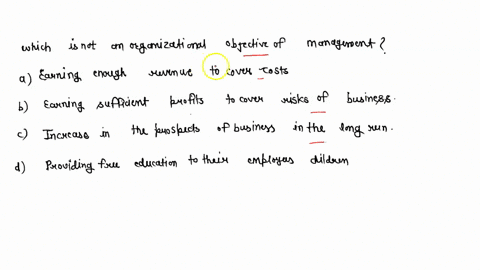 which is not an organizational objective of management?
a) Earning enough revenue to cover costs
b) Earning sufficient profits to cover risks of business.
c) Increase in the prospects of business in the long run.
d) Providing free education to their employees children